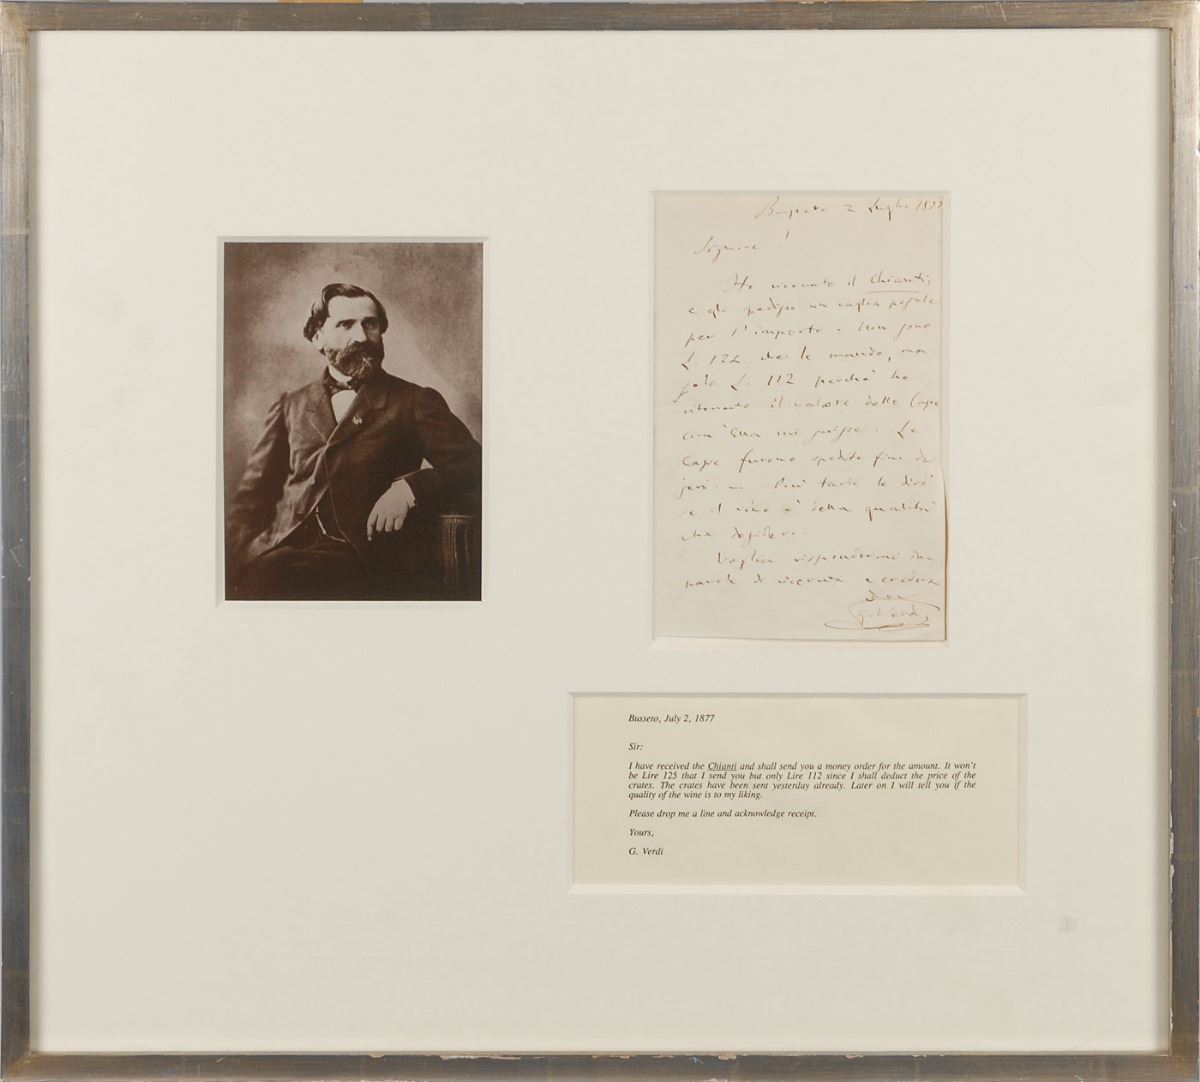 Busseto 2 Luglio 1877
Signore!
Ho ricevuto il Chianti,
e gli spedisco un vaglia postale
per l'importo. Non sono
L. 12 che le mando, ma
solo L. 112 perchè ho
ritenuto il valore delle Casse
com'Ella mi scrisse. Le
Casse furono spedite fino da
jeri. — Più tardi le dirò
se il vino è della qualità
che desidero.
Voglia rispondermi due
parole di ricevuta e credermi
G. Verdi
Busseto, July 2, 1877
Sir:
I have received the Chianti and shall send you a money order for the amount. It won't
be Lire 125 that I send you but only Lire 112 since I shall deduct the price of the
crates. The crates have been sent yesterday already. Later on I will tell you if the
quality of the wine is to my liking.
Please drop me a line and acknowledge receipt.
Yours,
G. Verdi